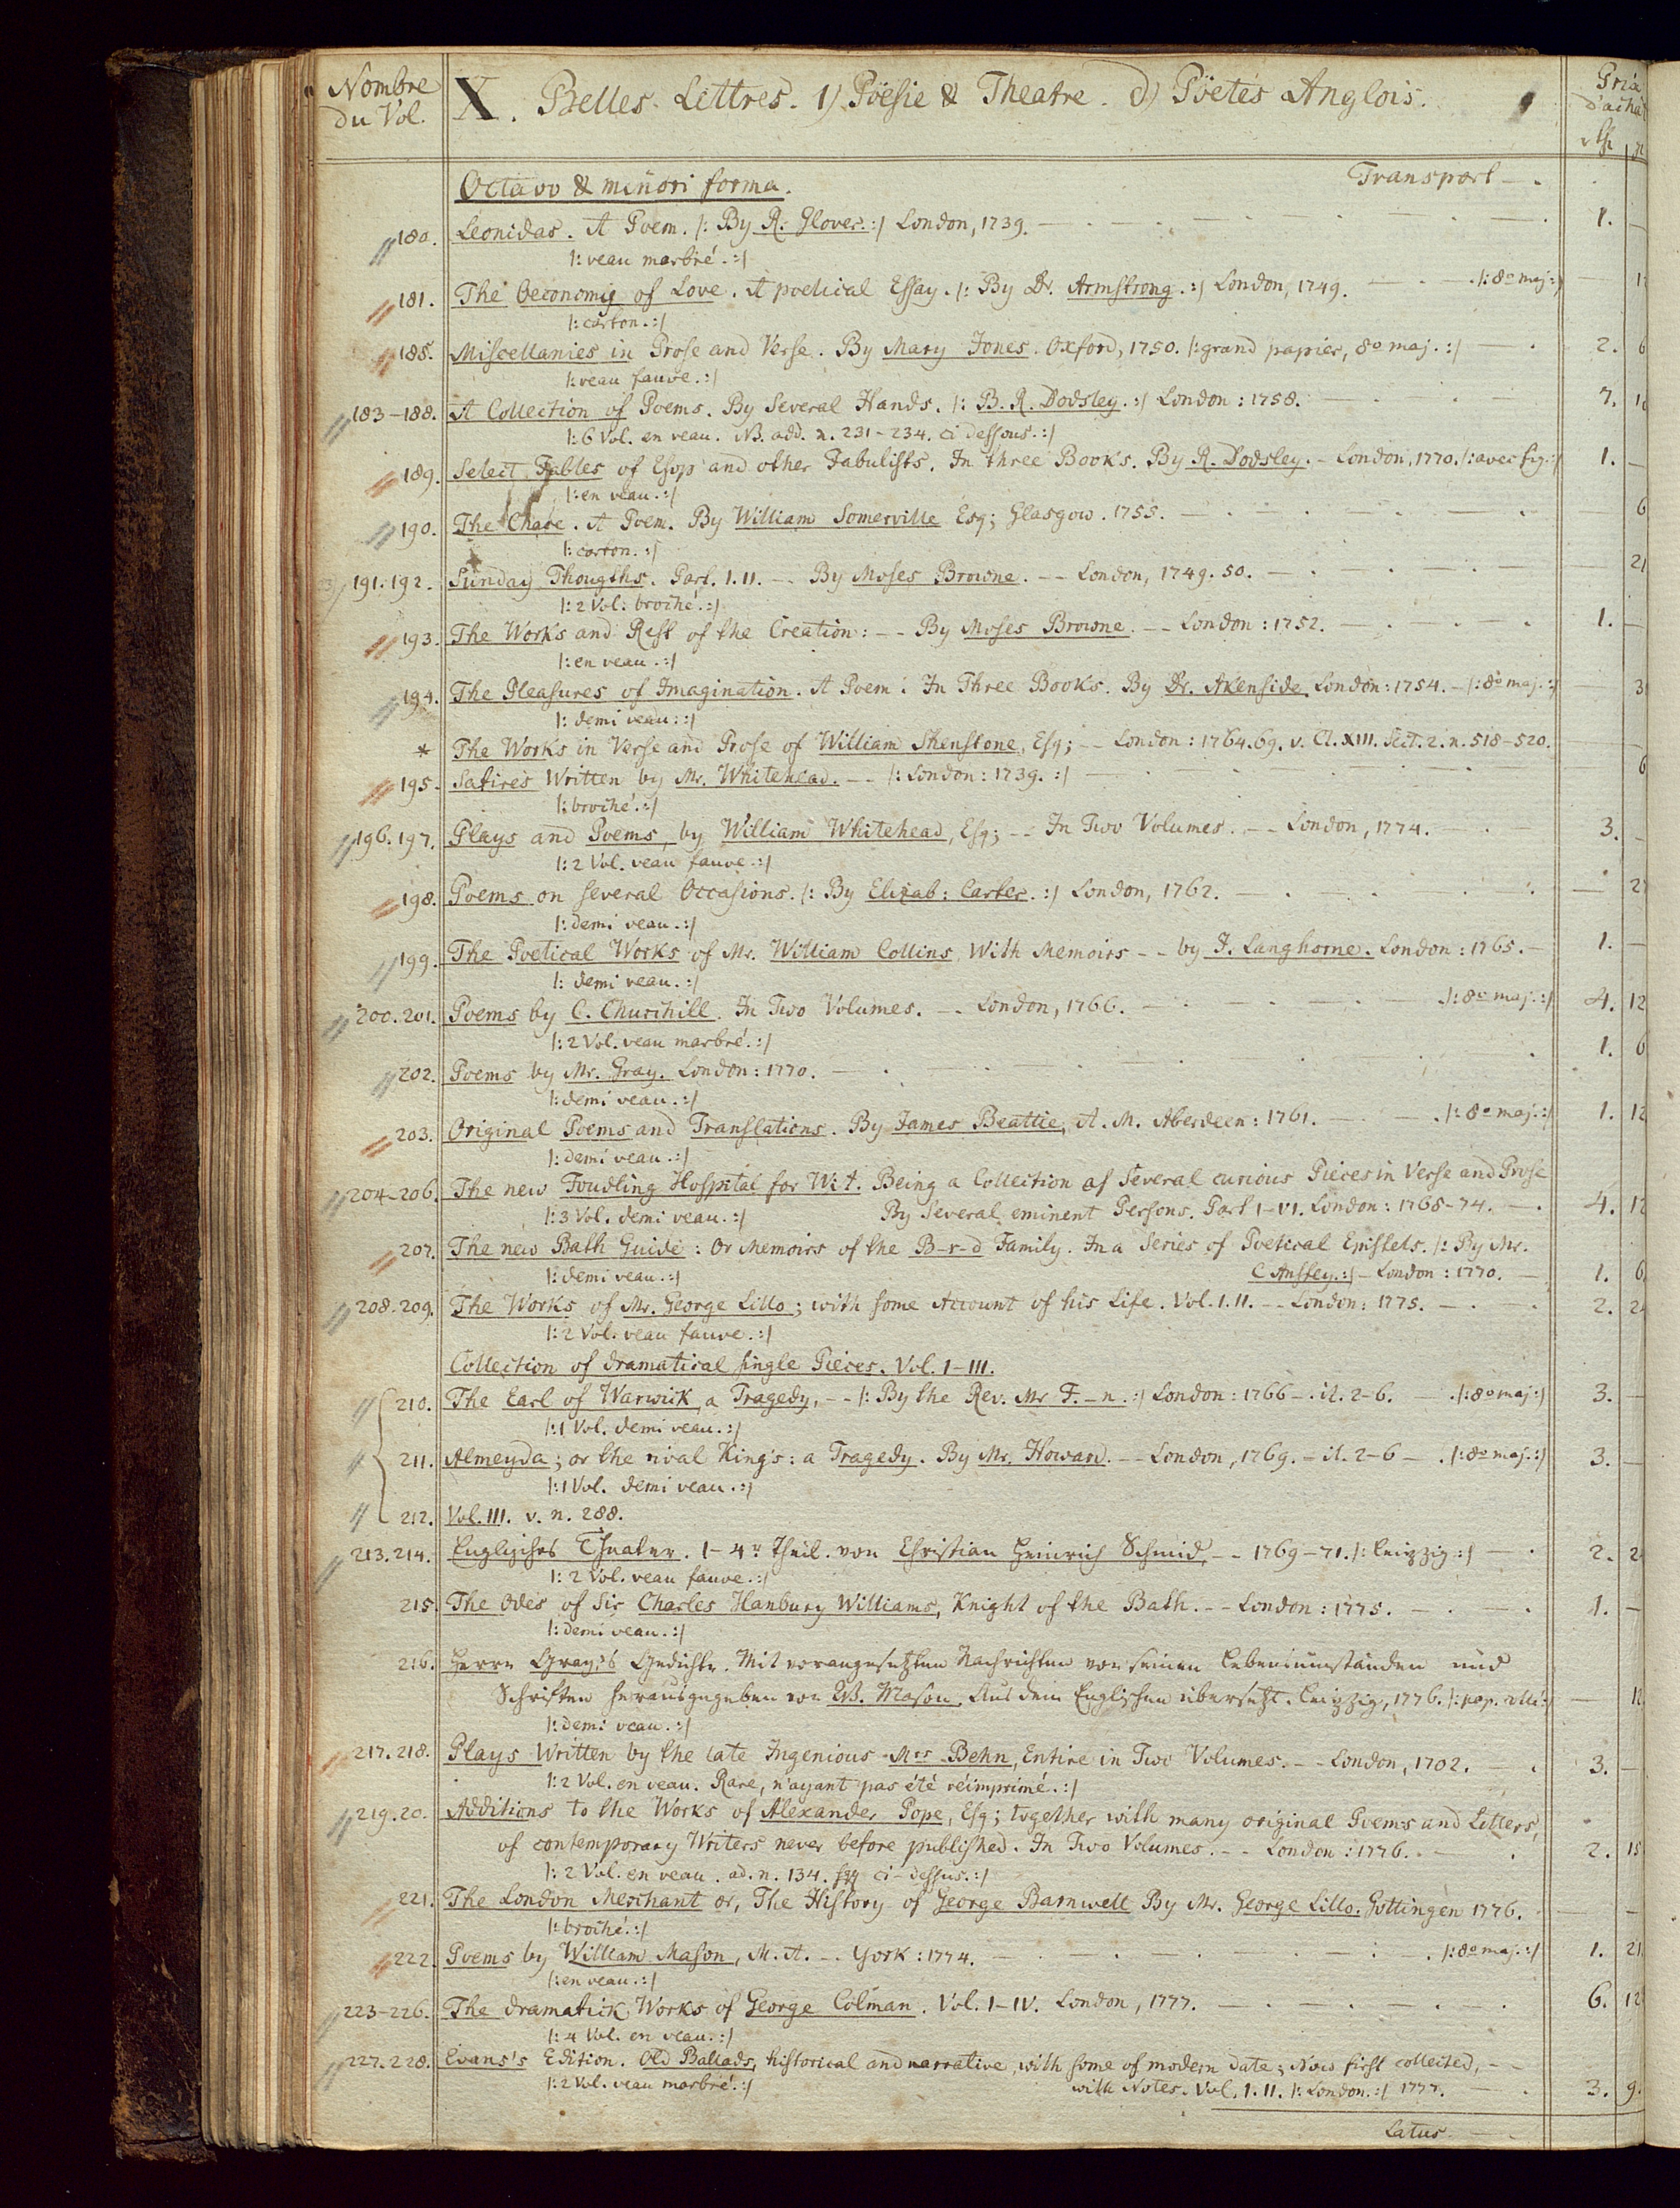 Nombre du Vol.
X. Belles-Lettres. 1) Poësie & Theatre. d) Poëtes Anglois.
Prix d'achat
Octavo & minori forma. Transport —.
180. Leonidas. A Poem. |: By R. Glover. :| London, 1739. — 1. —
|: veau marbré. :|
181. The Oeconomy of Love. A poetical Essay. |: By Dr. Armstrong. :| London, 1749. — |: 8o maj :|
|: carton. :|
185. Miscellanies in Prose and Verse. By Mary Jones. Oxford, 1750. |: grand papier, 8o maj. :| — 2. 6
|: veau fauve. :|
183-188. A Collection of Poems. By Several Hands. |: B. R. Dodsley. :| London: 1758. — 7.
|: 6 Vol. en veau. NB. add. n. 231-234. ci dessous. :|
189. Select Fables of Esop and other Fabulists. In three Books. By R. Dodsley. - London, 1770. |: avec fig. :| 1. —
|: en veau. :|
190. The Chace. A Poem. By William Somerville Esq; Glasgow. 1755. — 6
|: carton. :|
191. 192. Sunday Thougths. Part. I. II. -- By Moses Browne. -- London, 1749. 50. — 21
|: 2 Vol: broché. :|
193. The Works and Rest of the Creation: -- By Moses Browne. -- London: 1752. — 1. —
|: en veau. :|
194. The Pleasures of Imagination. A Poem. In Three Books. By Dr. Akenside. London: 1754. - |: 8o maj. :| — 3
|: demi veau. :|
* The Works in Verse and Prose of William Shenstone, Esq; -- London: 1764. 69. v. Cl. XIII. Sect. 2. n. 518-520.
195. Satires Written by Mr. Whitehead. -- |: London: 1739. :| — 6
|: broché. :|
196. 197. Plays and Poems, by William Whitehead, Esq; -- In Two Volumes. -- London, 1774. — 3. —
|: 2 Vol. veau fauve. :|
198. Poems on several Occasions. |: By Elizab: Carter. :| London, 1762. — 2
|: demi veau. :|
199. The Poetical Works of Mr. William Collins With Memoirs -- by J. Langhorne. London: 1765. — 1. —
|: demi veau. :|
200. 201. Poems by C. Churchill. In Two Volumes. -- London, 1766. — |: 8o maj. :| 4. 12
|: 2 Vol. veau marbré. :|
202. Poems by Mr. Gray. London: 1770. — 1. 6
|: demi veau. :|
203. Original Poems and Translations. By James Beattie, A. M. Aberdeen: 1761. — |: 8o maj. :| 1. 12
|: demi veau. :|
204-206. The new Foudling Hospital for Wit. Being a Collection of Several curious Pieces in Verse and Prose
|: 3 Vol. demi veau. :| By Several eminent Persons. Part I-VI. London: 1768-74. — 4. 12
207. The new Bath Guide: Or Memoirs of the B-r-d Family. In a Series of Poetical Epistels. |: By Mr.
|: demi veau. :| C Anstey. :| - London: 1770. — 1. 6
208. 209. The Works of Mr. George Lillo; with some Account of his Life. Vol. I. II. -- London: 1775. — 2. 2
|: 2 Vol. veau fauve. :|
Collection of dramatical single Pieces. Vol. I-III.
210. The Earl of Warwick, a Tragedy, -- |: By the Rev. Mr F.-n. :| London: 1766 -. it. 2-6. — |: 8o maj :| 3. —
|: 1 Vol. demi veau. :|
211. Almeyda; or the rival King's: a Tragedy. By Mr. Howard. -- London, 1769. - it. 2-6 -. |: 8o maj. :| 3. —
|: 1 Vol. demi veau. :|
212. Vol. III. v. n. 288.
213. 214. Englisches Theater. 1-4r Theil. von Christian Heinrich Schmid. -- 1769-71. |: Leipzig :| — 2. 2
|: 2 Vol. veau fauve. :|
215. The Odes of Sir Charles Hanbury Williams, Knight of the Bath. -- London: 1775. — 1. —
|: demi veau. :|
216. Herrn Gray's Gedichte. Mit vorangesetzten Nachrichten von seinen Lebensumständen und
Schriften herausgegeben von W. Mason. Aus dem Englischen übersetzt. Leipzig, 1776. |: pap. coll. :| — 12
|: demi veau. :|
217. 218. Plays Written by the late Ingenious Mrs Behn, Entire in Two Volumes. -- London, 1702. — 3. —
|: 2 Vol. en veau. Rare, n'ayant pas été réimprimé. :|
219. 20. Additions to the Works of Alexander Pope, Esq; together with many original Poems and Letters,
of contemporary Writers never before published. In Two Volumes. -- London: 1776. — 2. 15
|: 2 Vol. en veau. ad. n. 134. sqq ci-dessus. :|
221. The London Merchant or, The History of George Barnwell By Mr. George Lillo. Gottingen 1776. — —
|: broché. :|
222. Poems by William Mason, M. A. -- York: 1774. — |: 8o maj. :| 1. 21
|: en veau. :|
223-226. The dramatick Works of George Colman. Vol. I-IV. London, 1777. — 6. 12
|: 4 Vol. en veau. :|
227. 228. Evans's Edition. Old Ballads, historical and narrative, with some of modern date; Now first collected, --
|: 2 Vol. veau marbré. :| with Notes. Vol. I. II. |: London. :| 1777. — 3. 9.
Latus —